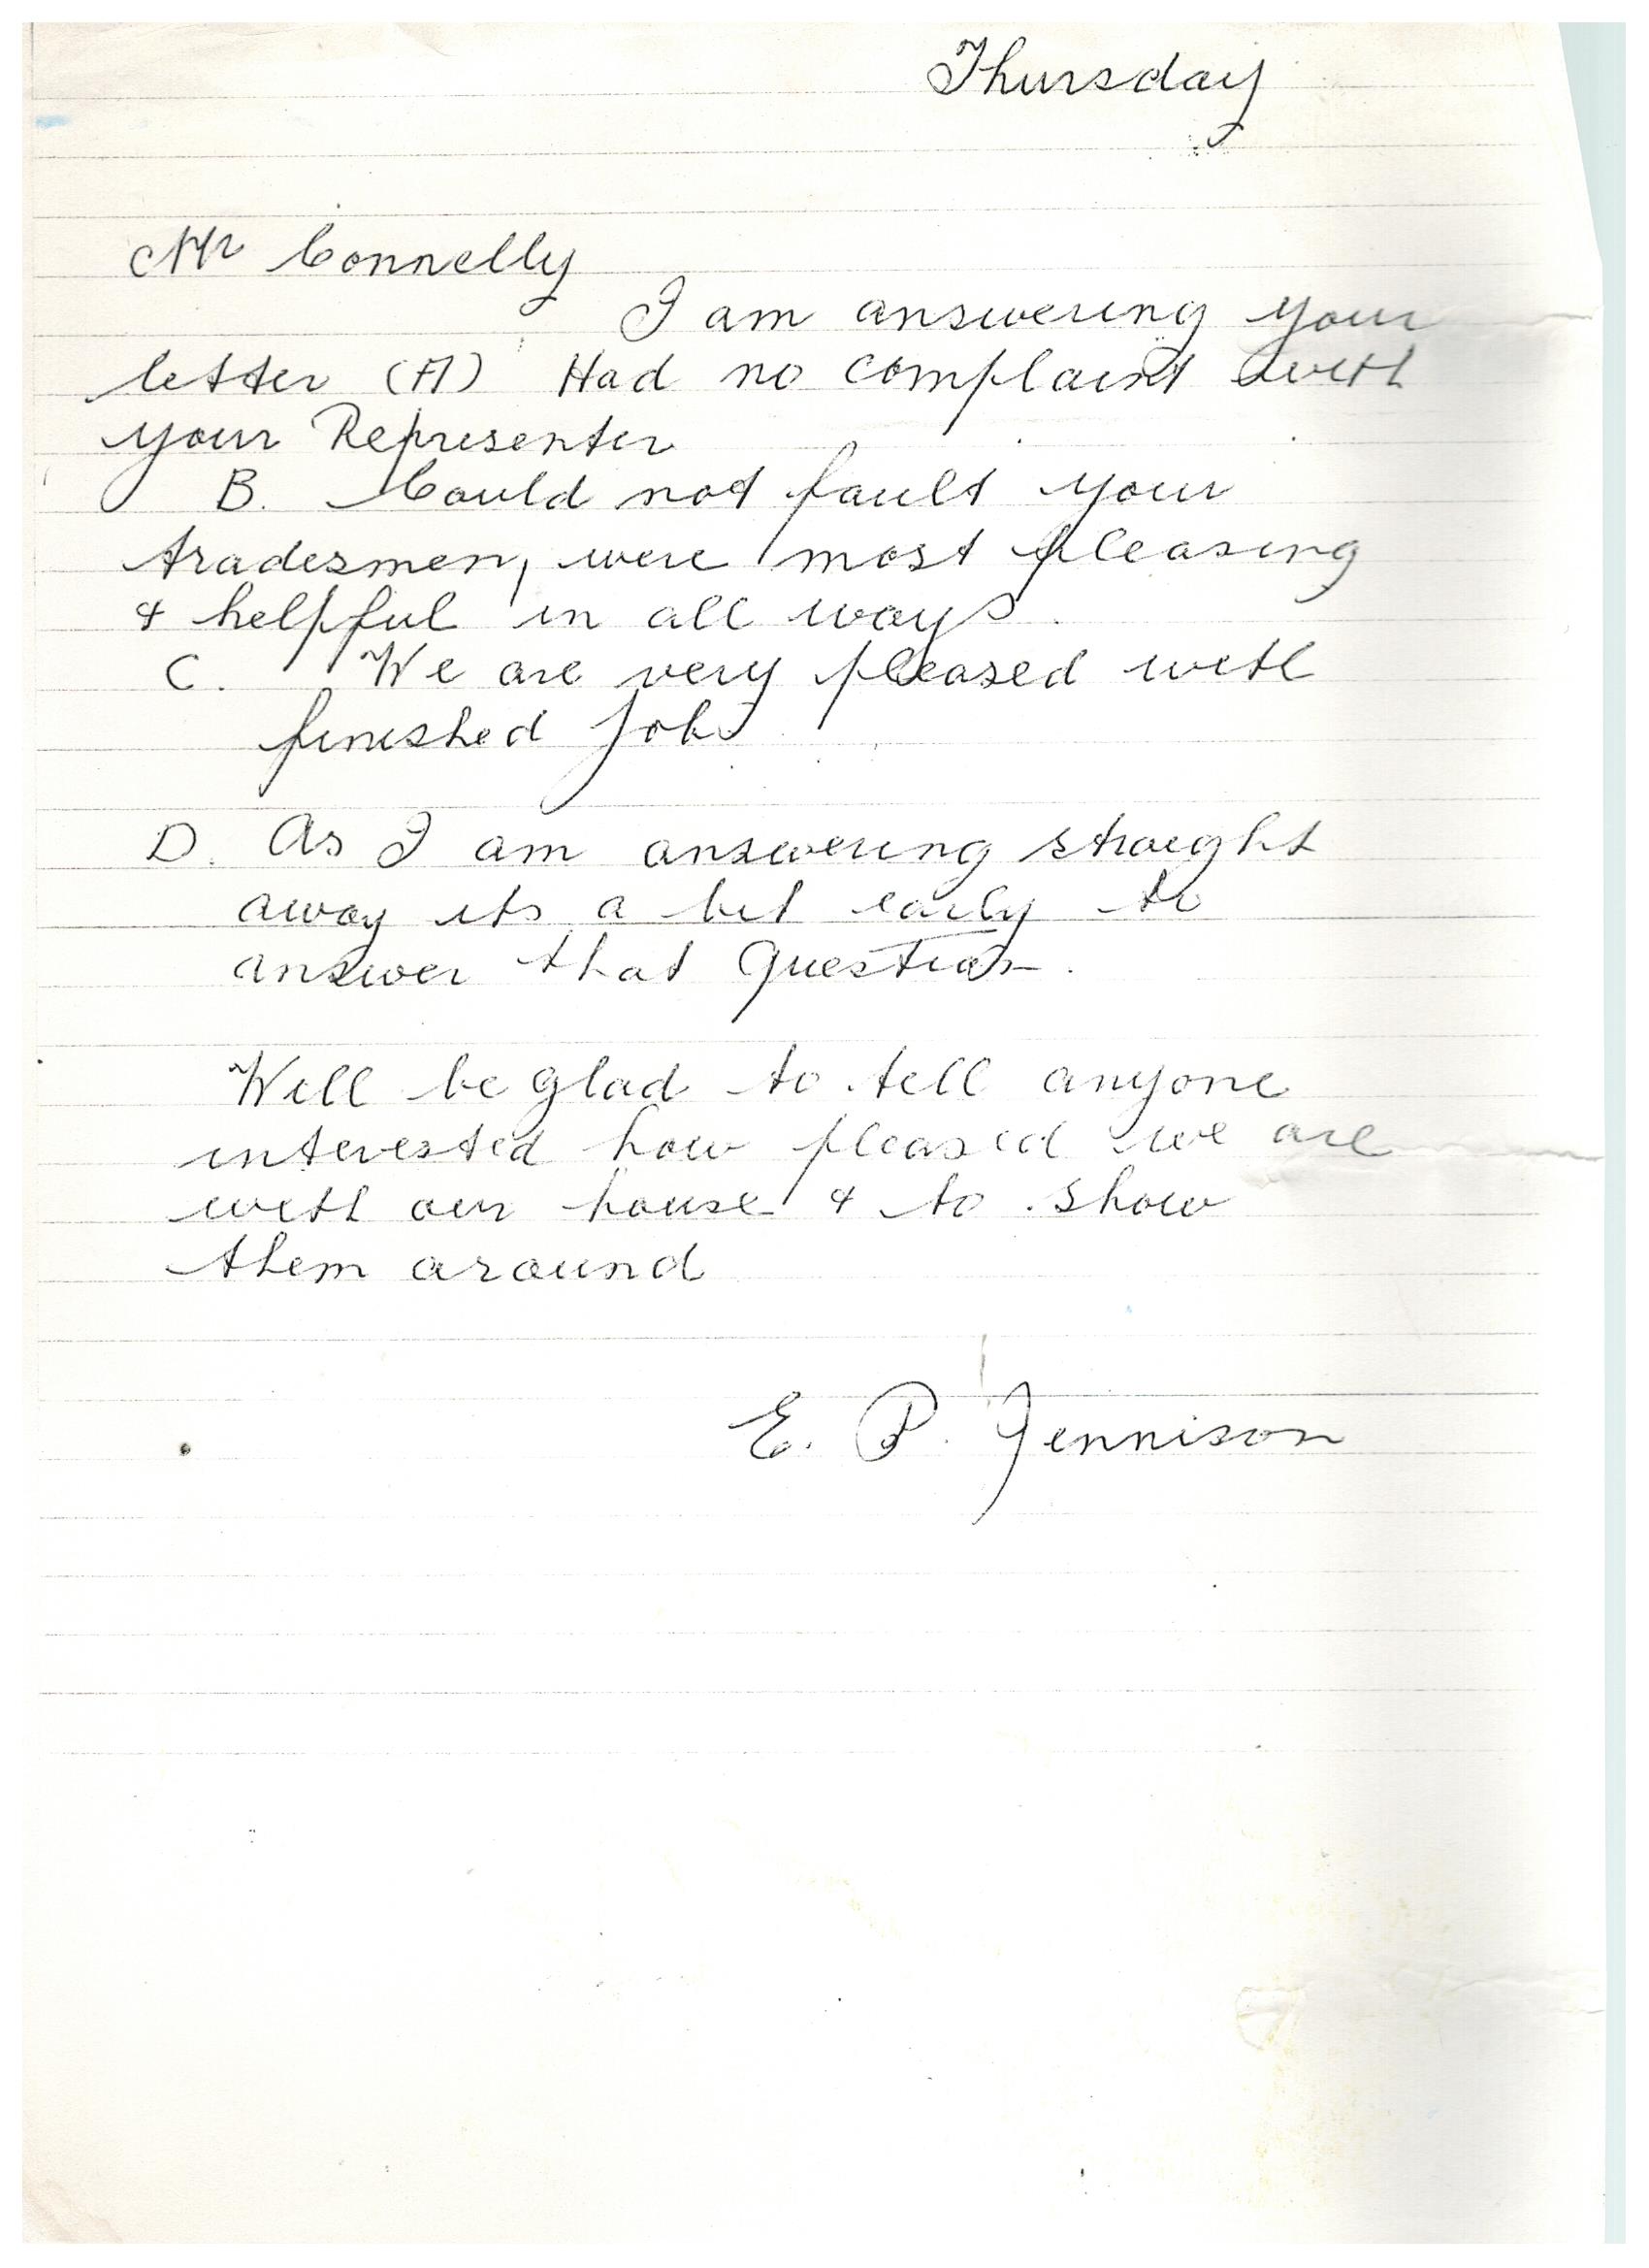 Thursday
Mr Connelly
I am answering your
letter (A) Had no complaint with
your Representer
B. Could not fault your
tradesmen, were most pleasing
& helpful in all ways.
C. We are very pleased with
finished job
D. As I am answering straight
away its a bit early to
answer that Question.
Will be glad to tell anyone
interested how pleased we are
with our house & to show
them around
E. P. Jennison